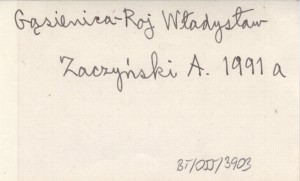 Gąsienica-Roj Władysław
Zaczyński A. 1991 a
BT/OJJ/3903